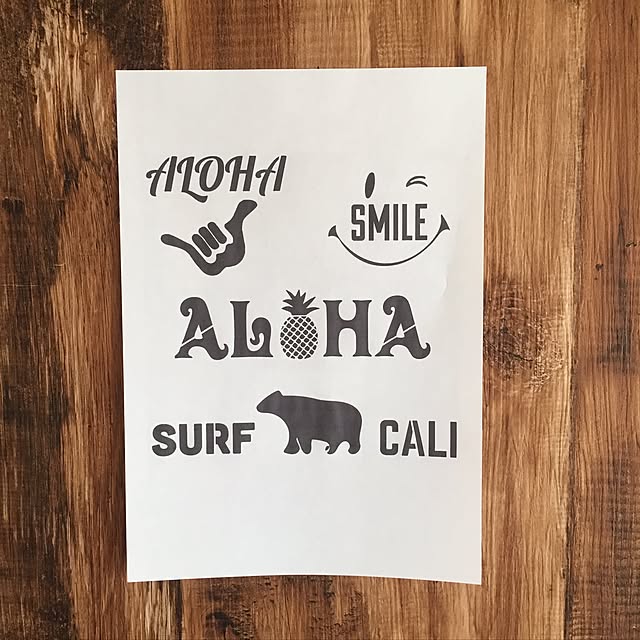 ALOHA
SMILE
ALOHA
SURF CALI